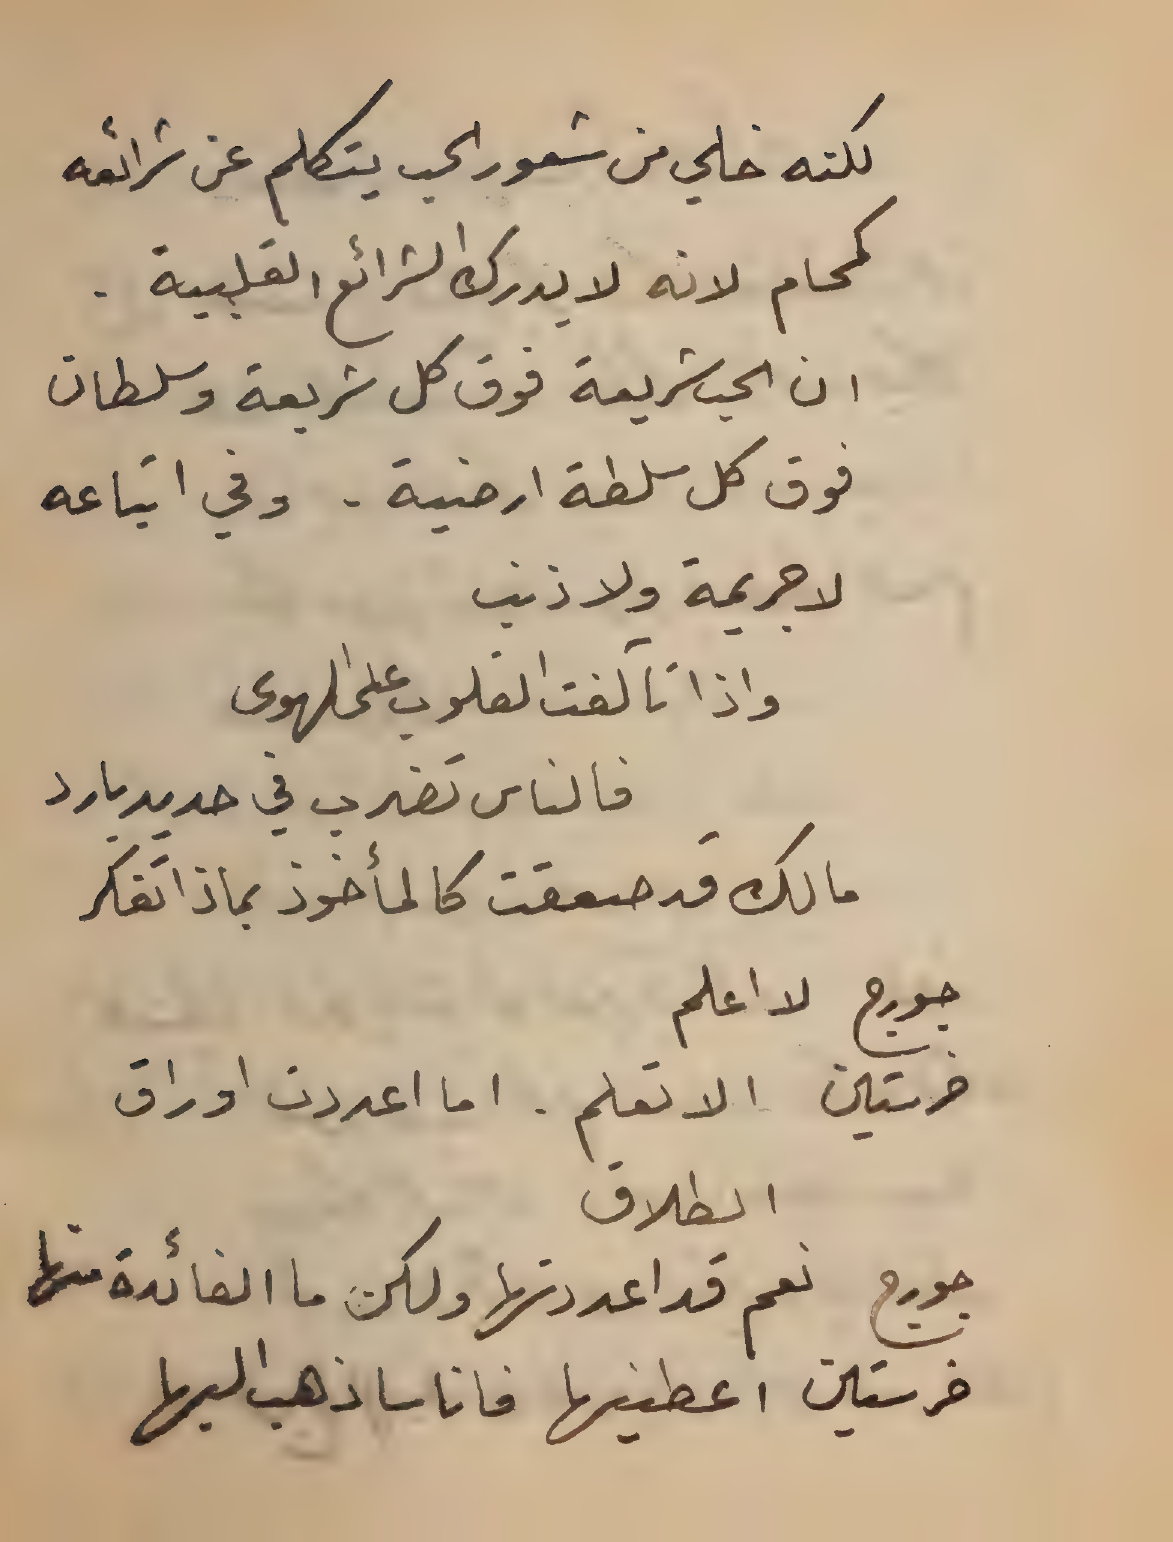 لكنه خلي من شعور الحب يتكلم عن شرائعه
كمحام لانه لا يدرك الشرائع القلبية .
ان الحب شريعة فوق كل شريعة وسلطان
فوق كل سلطة ارضية . وفي اتباعه
لا جريمة ولا ذنب
واذا تآلفت القلوب على الهوى
فالناس تضرب في حديد بارد
مالك قد صعقت كالمأخوذ بماذا تفكر
جورج لا اعلم
خرستين الا تعلم . اما اعددت اوراق
الطلاق
جورج نعم قد اعددتها ولكن ما الفائدة منها
خرستين اعطنيها فانا ساذهب اليها